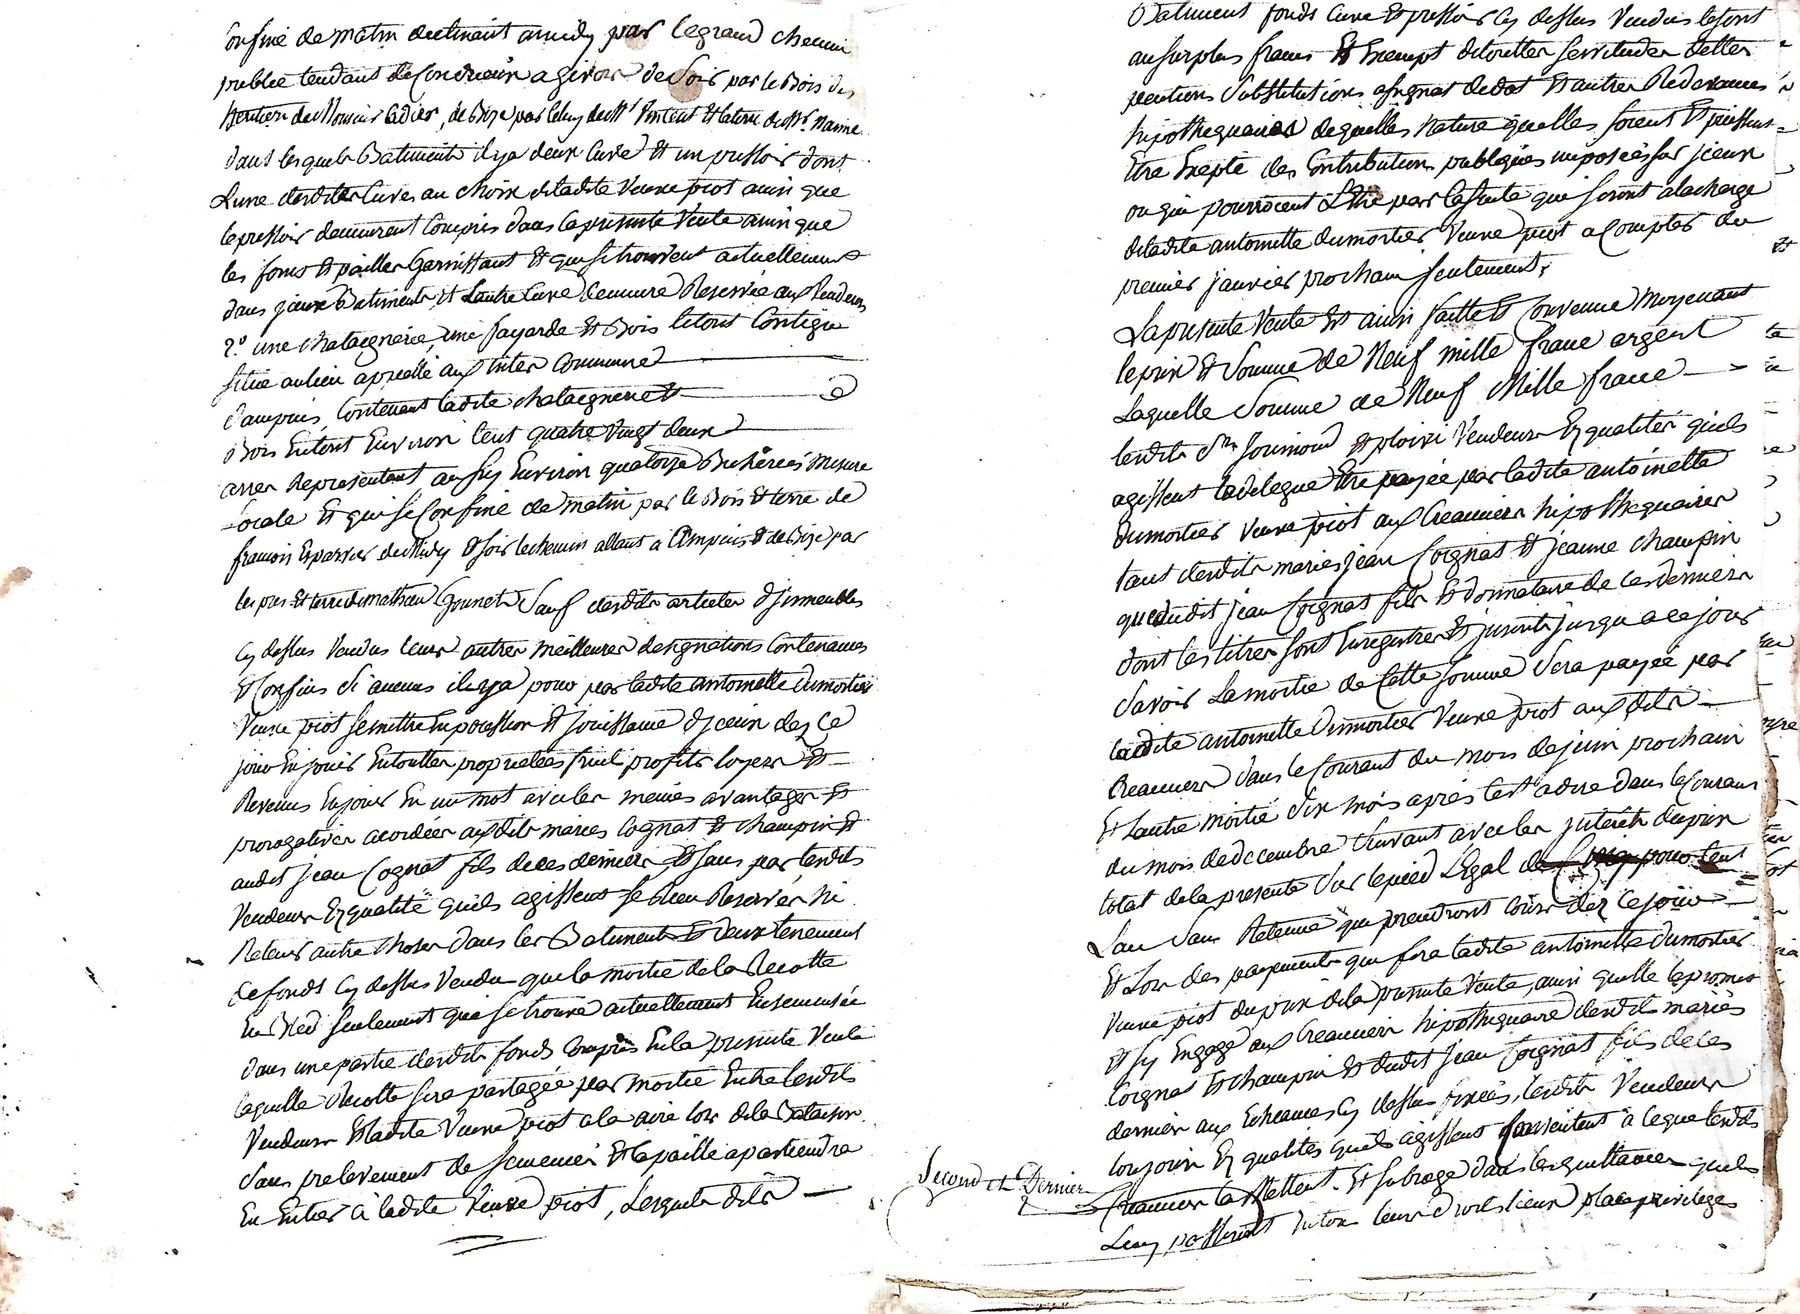 Confiné de matin declinant amidy par le grand chemin
public tendant de Condrieux a givors de soir par le Bois des
heritiers de Monsieur ladier, de Bize par celuy de Mr Vincent et la terre de Mr
dans lesquels Batiments il y a deux Cuve et un pressoir dont
L'une desdites Cuves au choix de ladite veuve piot ainsi que
le pressoir demeurent Compris dans la presente Vente ainsi que
les foins et pailles Garnissant et qui se trouvent actuellement
dans yceux Batiments et L'autre Cuve demeure Reservée aux Vendeurs
2.° une chataignerie, une fayarde et Bois le tout Contigu
situe au lieu appellé aux Commune
d'ampuis, Contenant ladite chataigneret et
Bois Entout Environ Cent quatre Vingt deux
arres Representant ansfy Environ quatorze Bicherées mesure
Locale et qui se Confine de matin par le Bois et terre de
francois Eparvier de Midy et soir le chemin allant à Ampuis et de Bize par
les pres et terre de mathieu Gounet, Sauf desdits articles d'jmmeubles
Cy dessus Vendus leurs autres meilleures designations Contenances
et Confins Si aucuns il y a pour par ladite antoinette dumortier
Veuve piot se mettre En possession et jouissance d'jceux dez Ce
jour En jouir En toutte proprietées fruit profits loyers et
Revenus En jouir En un mot avec les memes avantages et
prorogatives acordées aux dits mariés Cognat et champin et
audit jean Cognat fils de ces derniers, et sans par lesdits
Vendeurs Ez qualité qu'ils agissent se Rien Reserver ni
Retenir autre choses dans les Batiments et deux tenement
de fonds Cy dessus Vendu que la moitié de la Recolte
En Bled seulement qui se trouve actuellement Ensemensée
dans une partie desdits fonds Compris En la presente Vente
laquelle Recolte sera partagée par moitié Entre lesdits
Vendeurs et ladite Veuve piot a la aire lors de la Bataison
Sans prelevement de semences et la paille apartiendra
En Entier à ladite Veuve piot, Lesquels dits
Batiment fonds Cuve et pressoir Cy dessus Vendus le sont
au surplus francs et Exempt de touttes servitudes dettes
pentions Substitutions assignat de dot et autres Redevances
hipothequaires de quelles Nature quelles soient et puissent
Etre Exepté des Contributions publiques imposées sur jceux
ou qui pourroient L'Etre par la suite qui seront a la charge
de ladite antoinette dumortier Veuve piot a Compter du
premier janvier prochain seulement.
La presente Vente est ainsi faitte et Convenue Moyenant
le prix et Somme de Neuf mille franc argent
Laquelle Somme de Neuf Mille franc
lesdits Srs Jouimond et ploivi Vendeurs Ez qualités qu'ils
agissent la delegue Etre payée par ladite antoinette
dumortier Veuve piot aux Creanciers hipothequaires
tant desdits mariés jean Coignat et jeanne champin
que dudit jean Coignat fils et donnataire de ces derniers
dont les titres sont Enregistres et jnscrits jusqu'a ce jour
Savoir La moitié de Cette somme Sera payée par
ladite antoinette Dumortier Veuve piot aux dits
Creanciers dans le Courant du mois de juin prochain
Et L'autre moitié six mois après c'est a dire dans le Courant
du mois de decembre Suivant avec les jnterets du prix
total de la presente Sur le pied Légal de Cinq pour Cent
L'an Sans Retenue qui prendront Cours dez ce jour
et Lors des payements que fera ladite antoinette Dumortier
Veuve piot du prix de la presente Vente, ainsi qu'elle le promet
et s'y Engage aux Creanciers hipothequaire desdits mariés
Coignat et champin et dudit jean Coignat fils de ces
derniers aux Echeances Cy dessus fixées, lesdits Vendeurs
toujours Ez qualités qu'ils agissent Consentent à ce que lesdits
Second et Dernier
Creanciers la Mettent et subroge dans les quittances qu'ils
Luy passeront En tous leurs droits lieux place privileges